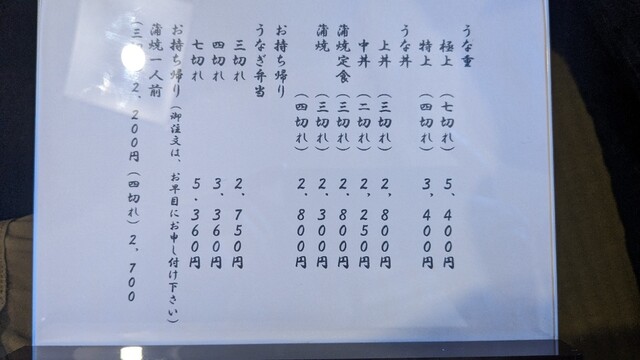 うな重
極上 (七切れ) 5,400円
特上 (四切れ) 3,400円
うな丼
上丼 (三切れ) 2,800円
中丼 (二切れ) 2,250円
蒲焼定食 (三切れ) 2,800円
蒲焼 (三切れ) 2,300円
(四切れ) 2,800円
お持ち帰り
うなぎ弁当
三切れ 2,750円
四切れ 3,360円
七切れ 5.360円
お持ち帰り (御注文は、お早目にお申し付け下さい)
蒲焼一人前
(三切れ) 2,200円 (四切れ) 2,700